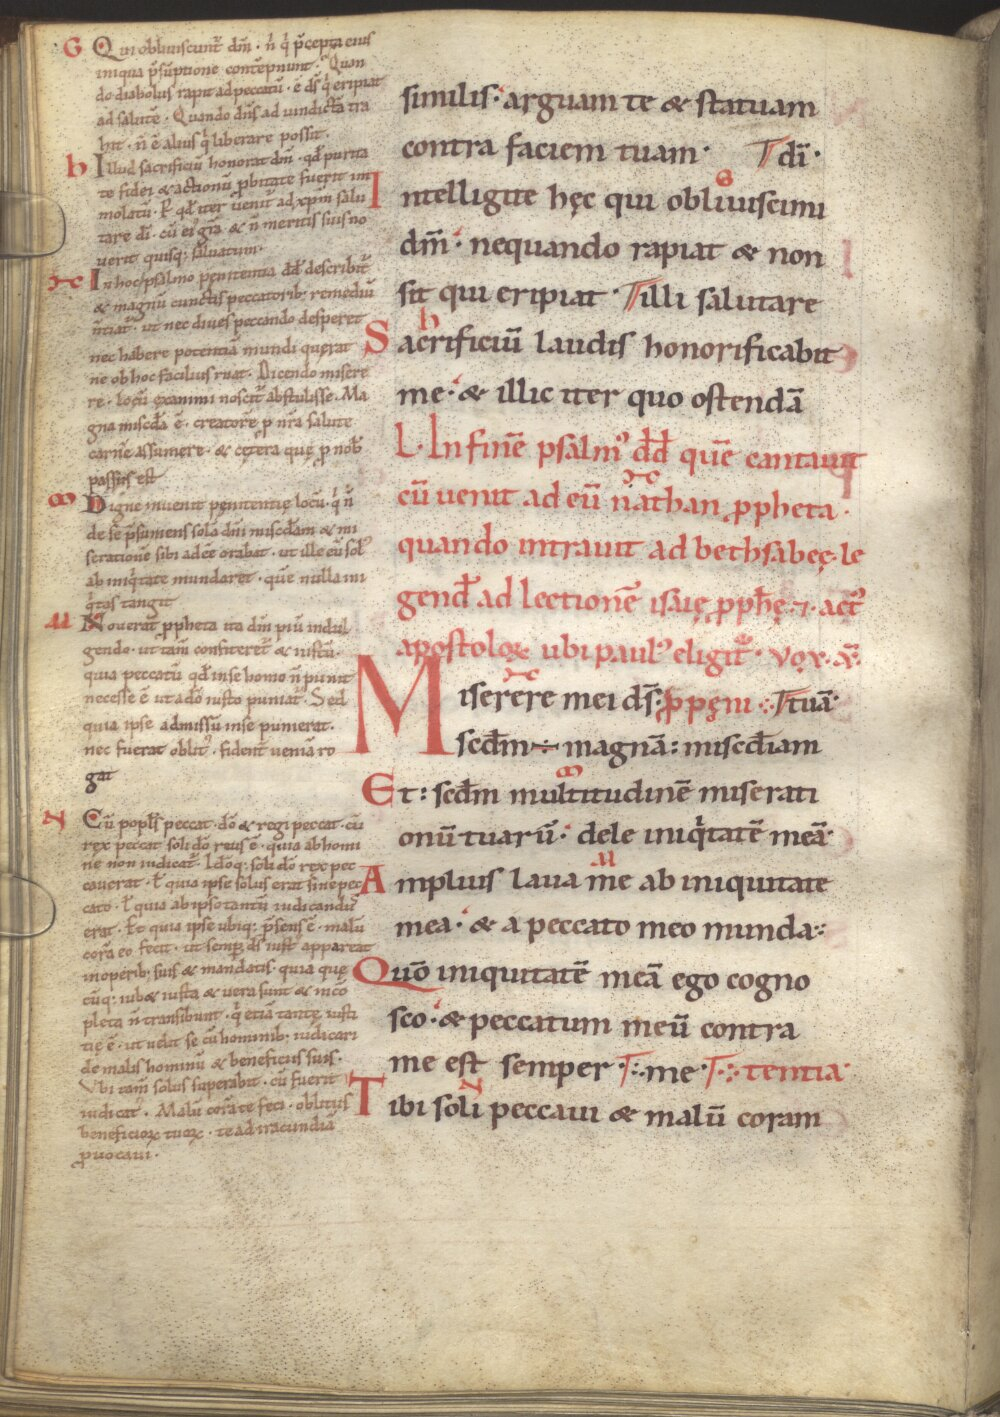 G Qui obliuiscunt̃ dm̃ · ñ q̇ p̃cepta eius
iniqua p̃sũptione contẽpnunt · Quan
do diabolus rapit ad peccatũ · ẽ ds̃ q̇ eripiat
ad salutẽ · Quando dñs ad uindictã tra
hit · ñ ẽ alius q̇ liberare possit ·
h Illud sacrificiũ honorat dm̃ · qd̃ purita
te fidei & actionũ ꝓbitate fuerit im
molatũ · Et qd̃ iter uenit̃ ad xp̃m salu
tare dĩ · cũ ei᷒ grã & ñ meritis suis no
uerit quisq; saluatum ·
In hoc psalmo pęnitentia dd̃ describit̃
& magnũ cunctis peccatorib; remediũ
ñtiat̃ · ut nec diues peccando desperet
nec habere potentiã mundi querat
ne ob hoc facilius ruat · Dicendo misere
re · locũ examini noscit̃ abstulisse · Ma
gna miscd̃a ẽ · creatorẽ p nr̃a salute
carnẽ assumere · & cętera quę p nob̃
passus est
Digne inuenit pęnitentię locũ · q̇ ñ
de se p̃sumens solã dñi miscd̃am & mi
serationẽ sibi adeẽ orabat · ut ille eũ sol᷒
ab iniq̇tate mundaret · quẽ nulla ini
q̇tas tangit
Nouerat ꝓpheta ita dm̃ piũ indul
gendo · ut tam̃ confiteret̃ & iustũ ·
quia peccatũ qd̃ in se homo ñ punit
necesse ẽ ut a dõ iusto puniat̃ · Sed
quia ipse admissũ in se punierat ·
nec fuerat oblit᷒ · fident̃ ueniã ro
gat
N Cũ popl᷒s peccat · dõ & regi peccat · cũ
rex peccat soli dõ reus ẽ · quia ab homi
ne non iudicat̃ · Idõq; soli dõ rex pec
cauerat · ł quia ipse solus erat sine pec
cato · ł quia ab ipso tantũ iudicand᷒
erat · Et quia ipse ubiq; p̃sens ẽ · malũ
corã eo fecit · ut semp ds̃ iust᷒ appareat
in operib; suis & mandatis · quia quę
cũq; iub& iusta & uera sunt & incõ
pleta ñ transibunt · q̇ etiã tantę iusti
tię ẽ · ut uelit se cũ hominib; iudicari
de malis hominũ & beneficiis suis ·
Vbi tam̃ solus superabit · cũ fuerit
iudicat᷒ · Malũ corã te feci · oblitus
beneficioꝝ tuoꝝ · te ad iracundiã
ꝓuocaui ·
similis · arguam te & statuam
contra faciem tuam · T dĩ ·
Intelligite hęc qui obliuiscimi
dm̃ · nequando rapiat & non
sit qui eripiat · T illi salutare
Sacrificiũ laudis honorificabit
me · & illic iter quo ostendã
L · In finẽ psalm᷒ dd̃ quẽ cantauit
cũ uenit ad eũ nathan ꝓpheta ·
quando intrauit ad bethsabeę · le
gend᷒ ad lectionẽ isaię ꝓphę · 7 · act᷒
apostoloꝝ ubi paul᷒ eligit̃ · vox · x̃
Miserere mei ds̃ : ꝓpęni · T tuã ·
scd̃m ÷ magnã : miscd̃iam
Et : scd̃m multitudinẽ miserati
onũ tuarũ · dele iniq̇tatẽ meã
Amplius laua me ab iniquitate
mea · & a peccato meo munda :
Quõ iniquitatẽ meã ego cogno
sco · & peccatum meũ contra
me est semper T : me T : tentia
Tibi soli peccaui & malũ coram